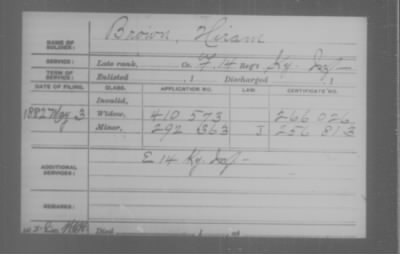 NAME OF SOLDIER: Brown, Hiram
SERVICE: Late rank, Co. F, 14 Reg't Ky. Inf
TERM OF SERVICE: Enlisted , 1 Discharged , 1
DATE OF FILING. CLASS. APPLICATION NO. LAW. CERTIFICATE NO.
Invalid,
1882 May 3 Widow, 410 573 266 026
Minor, 292 363 J 256 813
ADDITIONAL SERVICES: E 14 Ky. Inf
REMARKS:
Died